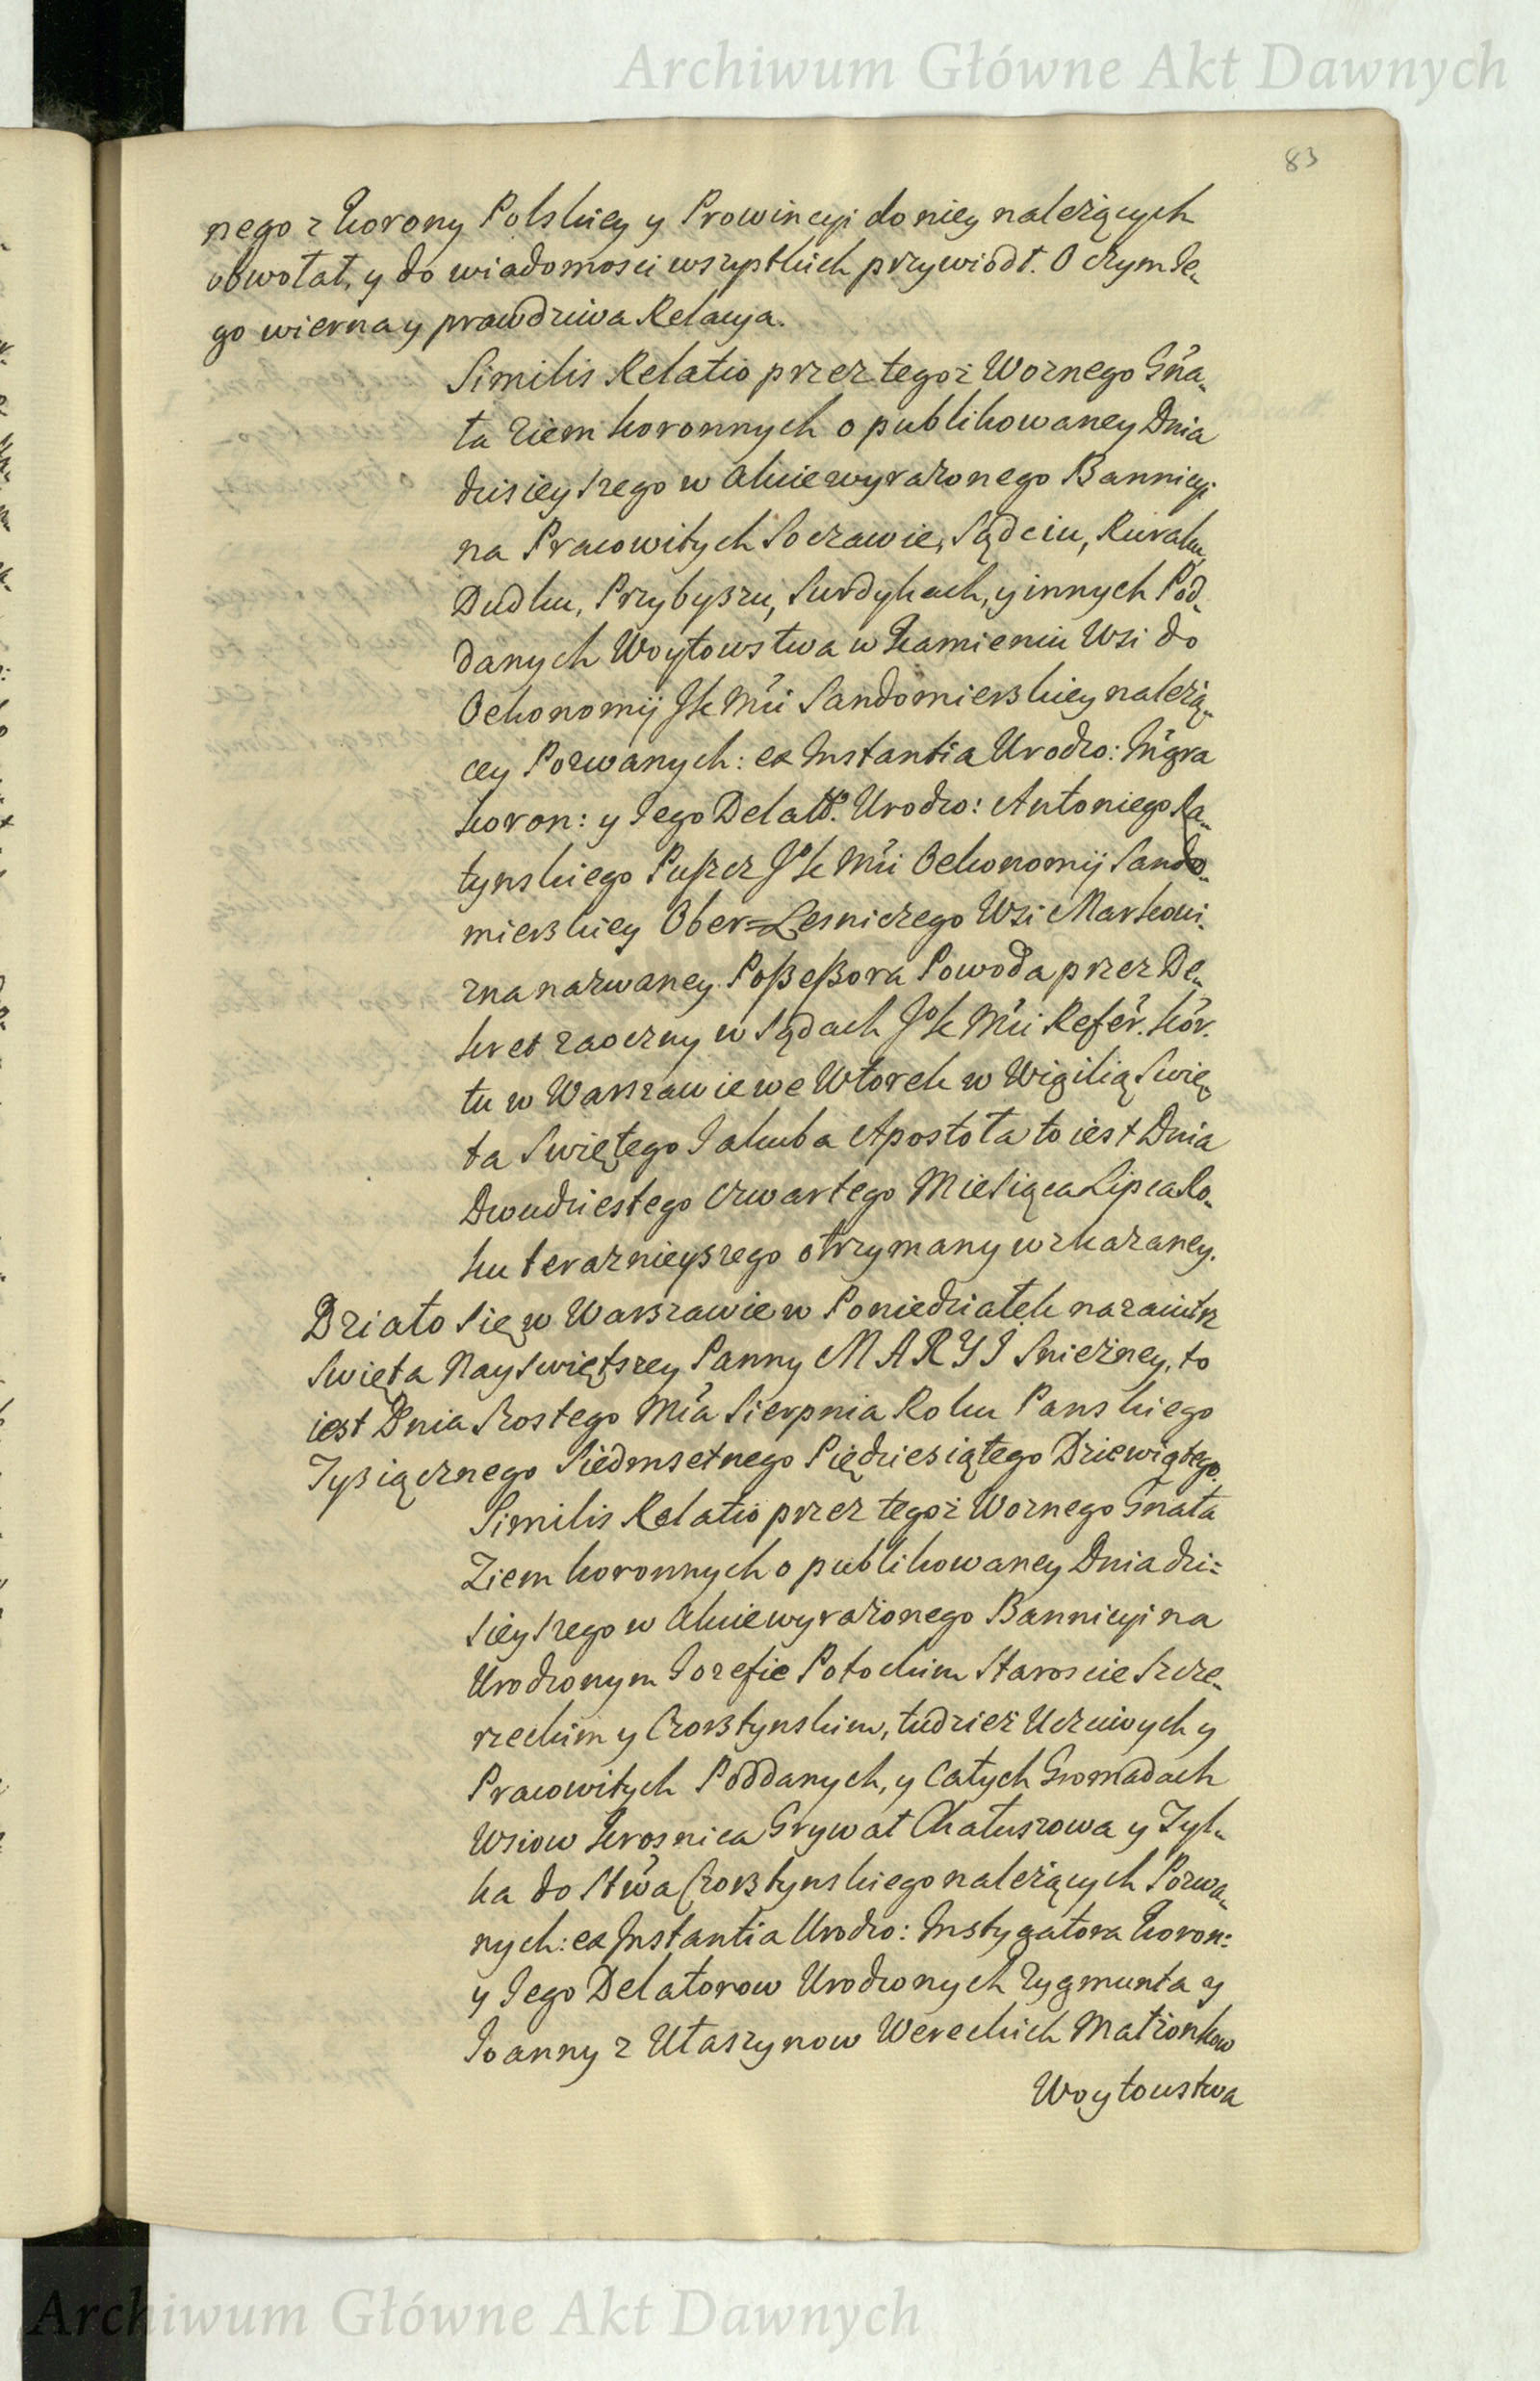 Archiwum Główne Akt Dawnych
83
nego z Korony Polskiey y Prowincyi do niey należących
obwołał, y do wiadomosci wszystkich przywiodł. O czym Je„
go wierna y prawdziwa Relacya.
Similis Relatio przez tegoż Woznego Gńa„
ła Ziem koronnych o publikowaney Dnia
dzisieyszego w Akcie wyrażonego Bannicyi
na Pracowitych Soczawie, Sądciu, Kuraku,
Dudku, Przybyszu, Surdykach, y innych Pod„
danych Woytowstwa w Kamieniu Wsi do
Oekonomij JK Mći Sandomierskiey należą„
cey Pozwanych: ex Instantia Urodzo: Ińgra
koron: y Jego Delatt. Urodzo: Antoniego Ra„
tynskiego Puszcz JK Mći Oekonomij Sando„
mierskiey Ober=Lesniczego Wsi Markowi„
zna nazwaney Possessora Powoda przez De„
kret zaoczny w Sądach JK Mći Refer. Kor.
tu w Warszawie we Wtorek w Wigilią Swię„
ta Swiętego Jakuba Apostoła to iest Dnia
Dwudziestego Czwartego Miesiąca Lipca Ro„
ku terazniejszego otrzymany wskazaney.
Działo się w Warszawie w Poniedziałek nazaiutrz
Swięta Nayswiętszey Panny MARYI Snieżney, to
iest Dnia Szostego Mća Sierpnia Roku Panskiego
Tysiącznego Siedmsetnego Pięcdziesiątego Dziewiątego.
Similis Relatio przez tegoż Woznego Gńała
Ziem koronnych o publikowaney Dnia dzi=
sieyszego w Akcie wyrażonego Bannicyi na
Urodzonym Jozefie Potockim Staroscie Szcze„
rzeckim y Czorsztynskim, tudzież Uczciwych y
Pracowitych Poddanych, y całych Gromadach
Wsiow Krosnica Grywałt Hałuszowa y Tyl„
ka do Stwa Czorsztynskiego należących Pozwa„
nych: ex Instantia Urodzo: Instygatora koron:
y Jego Delatorow Urodzonych Zygmunta y
Joanny z Ułaszynow Wereckich Małżonkow
Woytowstwa
Archiwum Główne Akt Dawnych